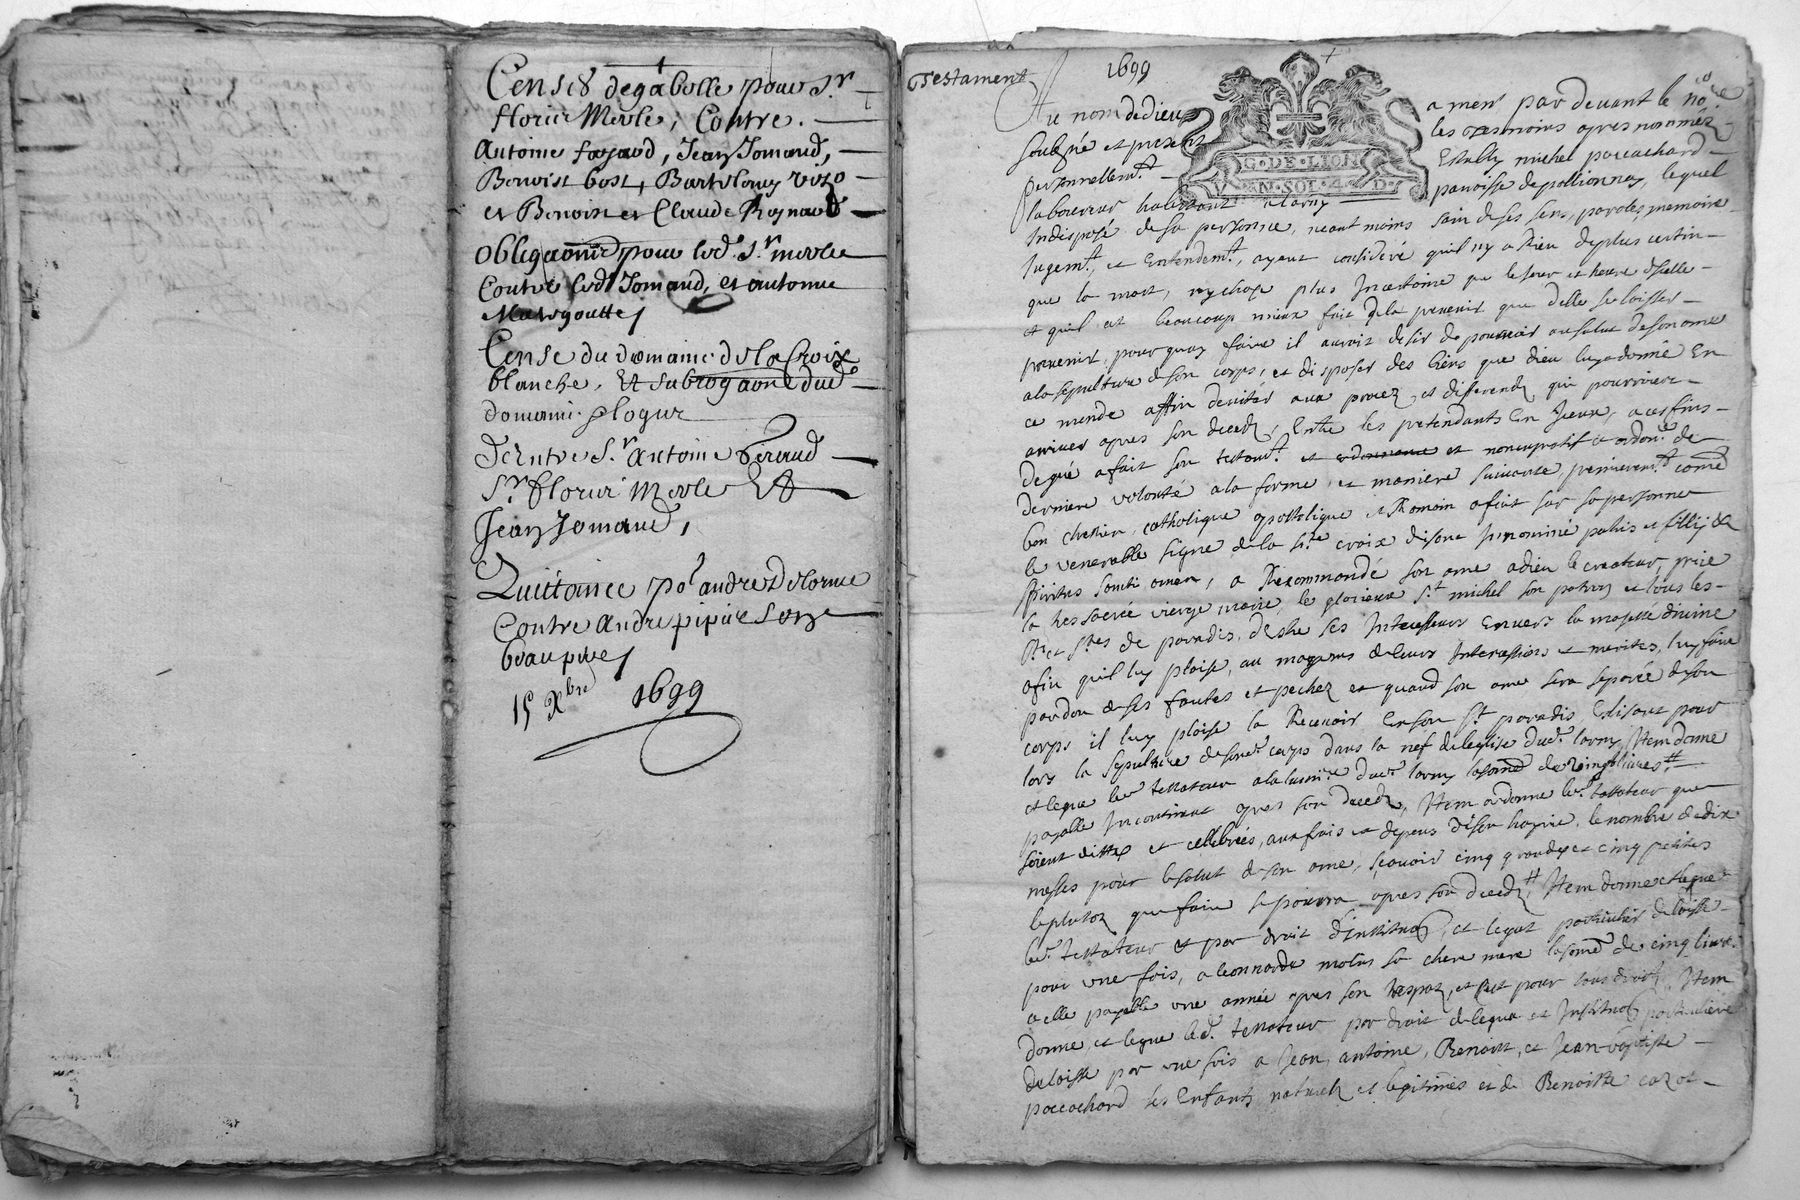 Censes de gabelle pour Sr
florin Merle, Contre.
Antoine fayard, Jean Jomand,
Benoist bost, Bartelemy
et Benoist et Claude Reynaud
Obliga^on pour led. Sr merle
Contre led Jomand, et antoine
Margoutte
Cense du domaine de la Croix
blanche, Et subroga^on dud
domaine
D'Entre Sr. Antoine beraud
Sr florin Merle Et
Jean Jomand,
Quittance po^r andre Delorme
Contre Andre pipar
beaupere
15 Xbre 1699
Testament
1699
Au nom de Dieu amen par devant le no^re
G·DE·LION
V N·SOL·4·D
soubzné et present les tesmoins apres nommez
personnellem^t Estably michel pocachard
laboureur habitant a larny paroisse de pollionnay, lequel
Indisposé de sa personne, neantmoins sain de ses sens, paroles, memoire
Jugem^t, et Entendem^t, ayant consideré quil ny a Rien de plus certin
que la mort, ny chose plus Incertaine que le jour et heure dicelle
et quil est beaucoup mieux fait de la prevenir que delle se laisser
prevenir, pourquoy faire il auroit desir de pourvoir au salut de son ame
a la sepulture de son corps, et disposer des biens que dieu luy a donné En
ce monde affin deviter aux procez et differendz qui pourroient
arriver apres son deceds, Entre les pretendants En Iceux, a ces fins
de gré a fait son testam^t et noncupatif et ordon^ce de
derniere volonté a la forme et maniere suivante, premierem^t comme
bon chretien catholique apostolique et Romain a fait sur sa personne
le venerable signe de la S^te croix disant In nomine patris et filij et
spiritus sancti amen, a Recommandé son ame a dieu le createur, prie
la tres sacrée vierge marie, le glorieux S^t michel son patron et tous les
S^ts et S^tes de paradis, destre ses Intercesseurs Envers la majesté divine
afin quil luy plaise, au moyens de leurs Intercessions et merites, luy faire
pardon de ses fautes et pechez et quand son ame sera separée de son
corps il luy plaise la Recevoir En son S^t paradis, Eslisant pour
lors la sepulture de sond. corps dans la nef de leglise dud. larny, Item donne
et legue led. testateur a la lumi^re dud. larny la somme de vingt livres
payable Incontinent apres son deceds, Item ordonne led. testateur que
soient dittes et cellebrées, aux frais et depens de son hoyrie, le nombre de dix
messes pour le salut de son ame, sçavoir cinq grandes et cinq petites
le plutot que faire se pourra apres son deceds, Item donne et legue
led. testateur et par droit d'Institu^on et legat particulier delaisse
pour une fois, a leonnarde molin sa chere mere la somme de cinq livres
a elle payable une année apres son trespaz, et c'est pour tous droits, Item
donne et legue led. testateur par droit de legat et Institu^on particuliere
delaisse par une fois a Jean, antoine, Benoist, et Jean baptiste
pocachard ses Enfants naturels et legitimes et de Benoiste cazot